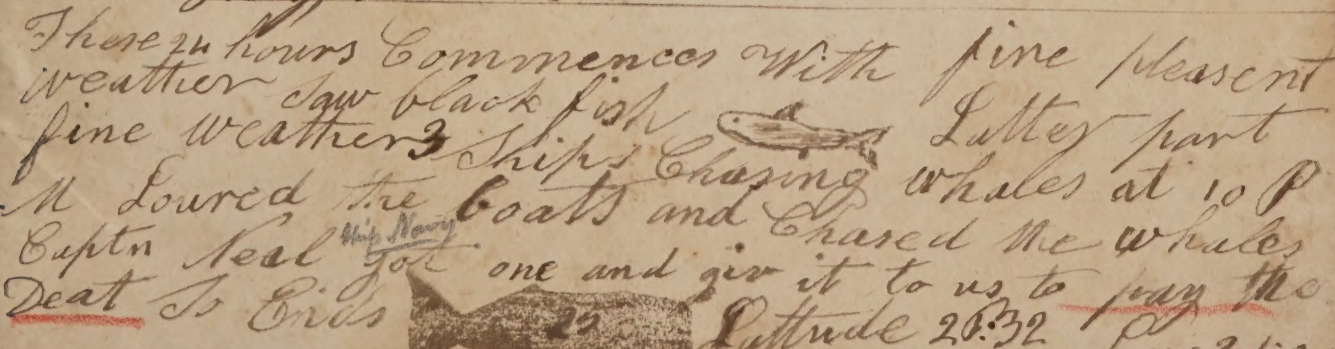 These 24 hours Commences With fine pleasent
weather Saw black fish Latter part
fine weather 3 Ships Chasing whales at 10 P
M Loured the boats and Chased the whales
Ship Navy
Captn Neal got one and giv it to us to pay the
Deat So Ends Lattrude 26:32